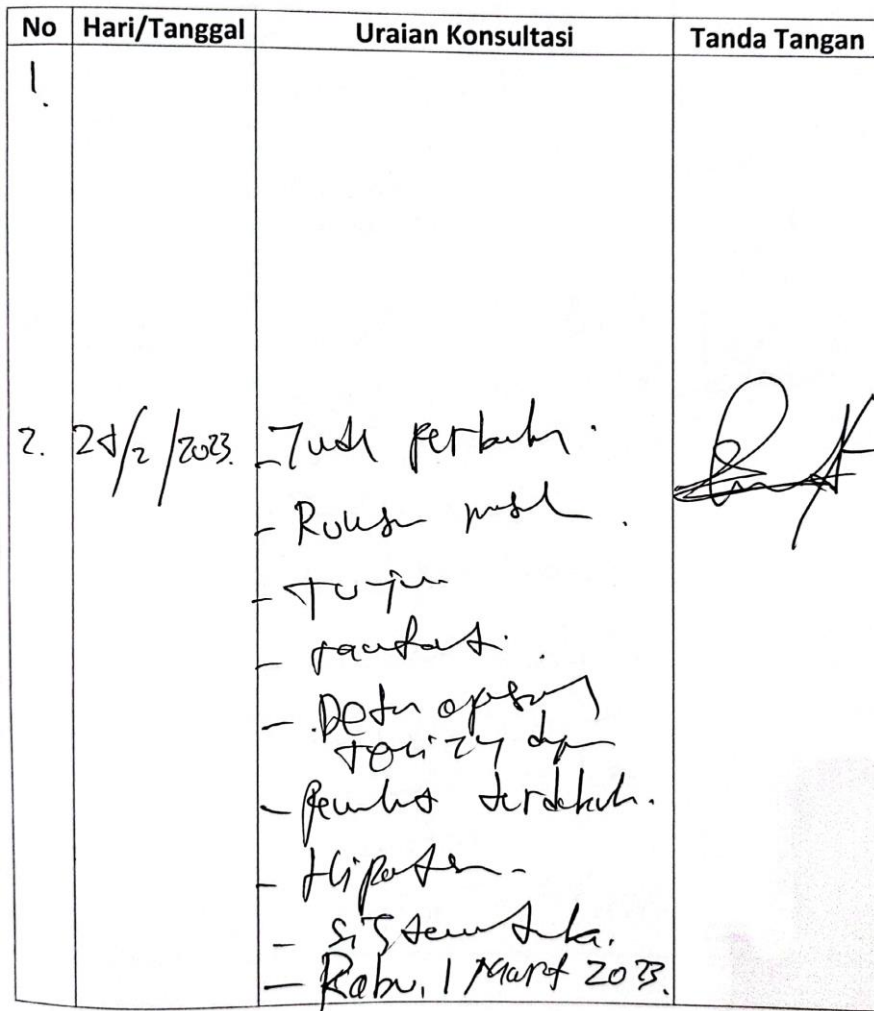 No Hari/Tanggal Uraian Konsultasi Tanda Tangan
1.
2. 28/2/2023. - Judul perbaiki.
- Rumusan masalah.
- Tujuan
- manfaat.
- Defin operasional
teori yg
- terdahulu.
- Hipotesis
- sistematika.
- Rabu, 1 Maret 2023.